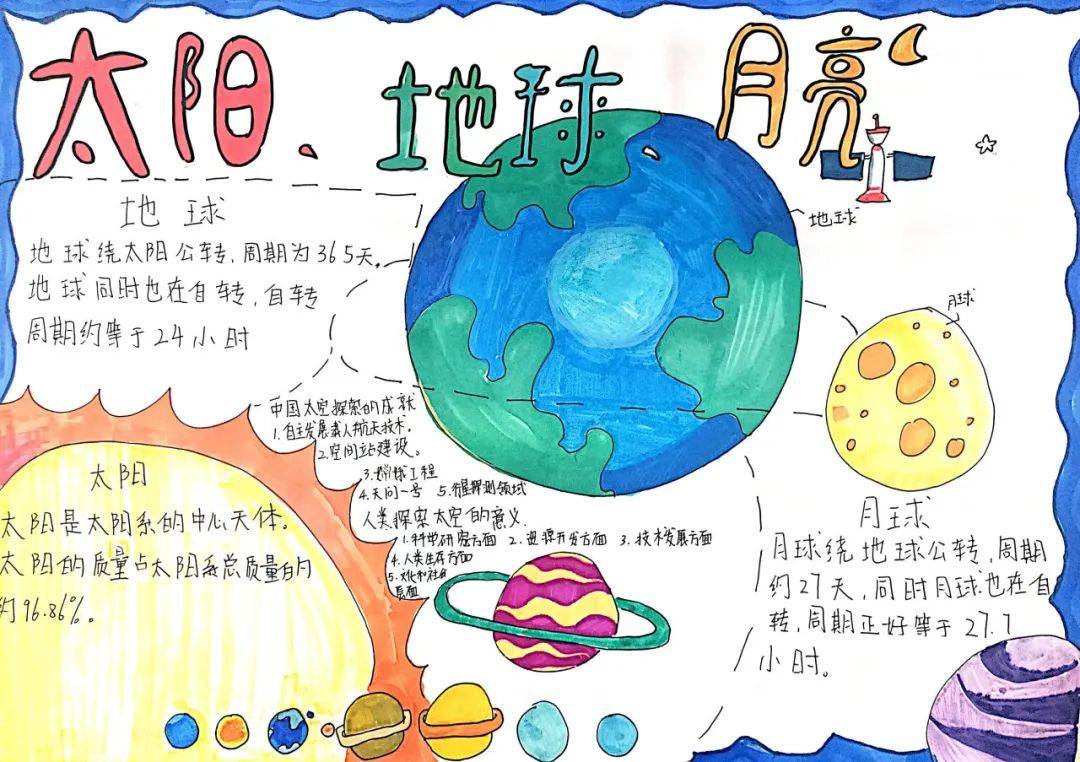 太阳、地球、月亮
地球
地球绕太阳公转,周期为365天。
地球同时也在自转,自转
周期约等于24小时
地球
月球
中国太空探索的成就
1.自主发展载人航天技术。
2.空间站建设。
3.探月工程
4.天问一号 5.行星探测领域
人类探索太空的意义
1.科学研究方面 2.资源开发方面 3.技术发展方面
4.人类生存方面
5.文化和社会
方面
太阳
太阳是太阳系的中心天体。
太阳的质量占太阳系总质量的
约96.86%。
月球
月球绕地球公转,周期
约27天,同时月球也在自
转,周期正好等于27.7
小时。